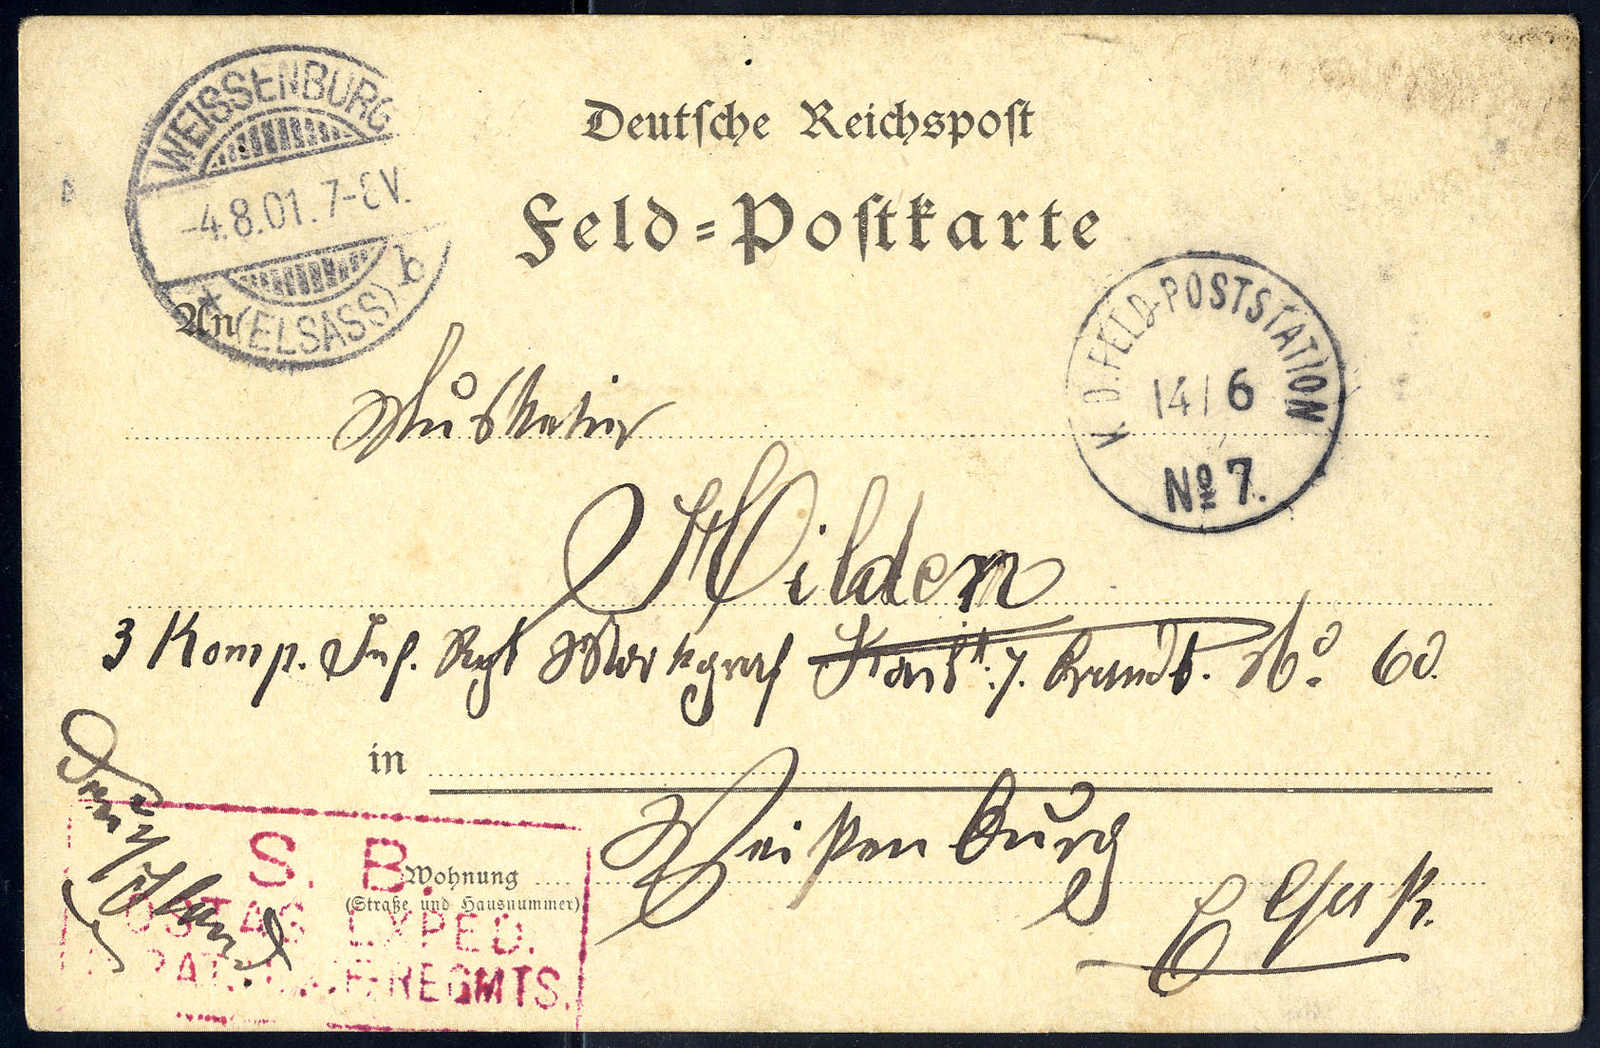 WEISSENBURG
-4.8.01.7-8V.
* (ELSASS) b
Deutsche Reichspost
Feld=Postkarte
K.D. FELD-POSTSTATION
14/6
No 7.
An
Musketier
Hilden
3 Komp. Inf. Rgt Markgraf Karl z. Brandb. No. 60.
in
Weißenburg
Elsaß.
Wohnung
(Straße und Hausnummer)
Deutschland
S. B.
OSTAS. EXPED.
BAT. REGMTS.